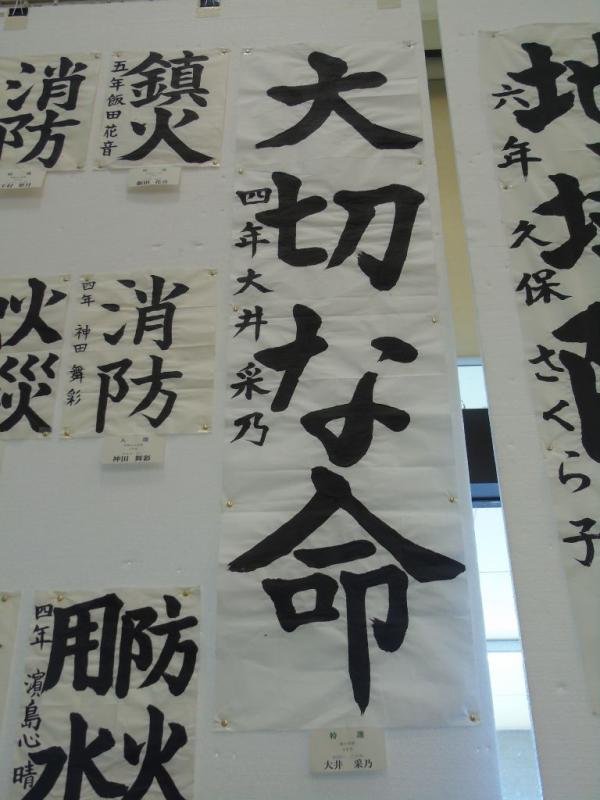 大切な命
四年大井采乃
特選
大井 采乃
鎮火
五年飯田花音
飯田 花音
消防
消防
四年 神田 舞彩
入選
神田 舞彩
火災
防火
用水
四年 濵島心晴
六年 久保さくら子
地域